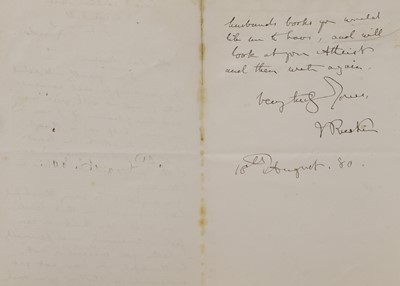 husbands books you would
like me to have, and will
look at your Atheist
and then write again.
very truly Yours,
J Ruskin
10th August. 80.